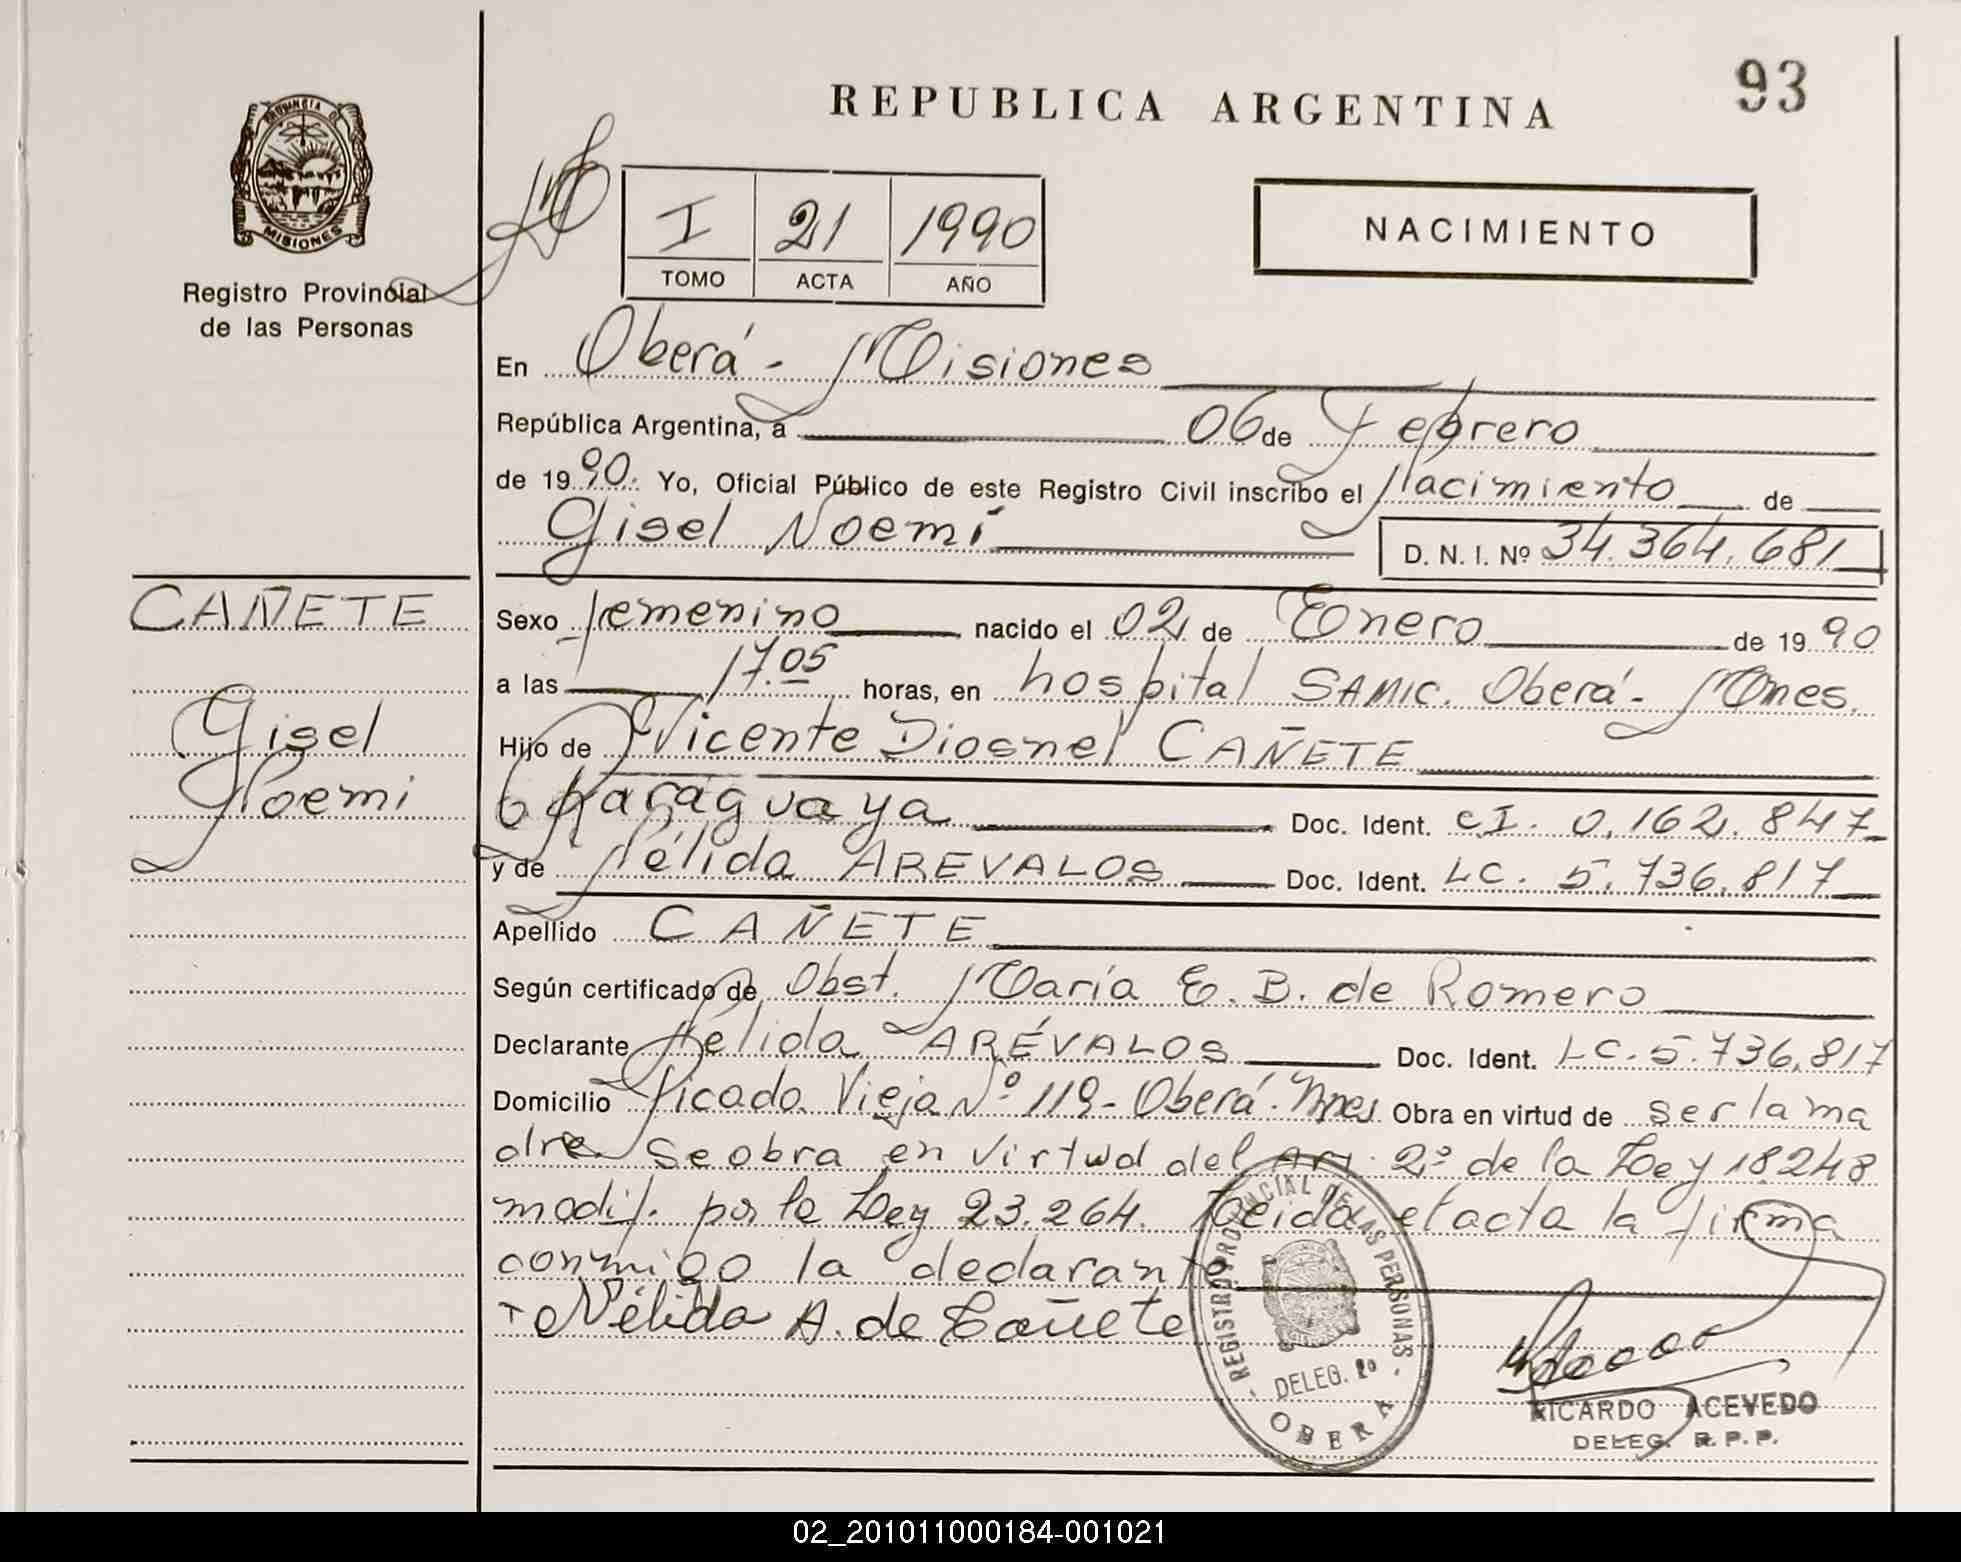 93
REPUBLICA ARGENTINA
PROVINCIA D MISIONES
Registro Provincial
de las Personas
I 21 1990
TOMO ACTA AÑO
NACIMIENTO
En Oberá - Misiones
República Argentina, a 06 de Febrero
de 1990. Yo, Oficial Público de este Registro Civil inscribo el Nacimiento de
Gisel Noemí D. N. I. Nº 34.364.681
CAÑETE
Gisel
Noemi
Sexo femenino nacido el 02 de Enero de 1990
a las 17.05 horas, en hospital SAMIC. Oberá - Mnes.
Hijo de Vicente Diosnel CAÑETE
Paraguaya Doc. Ident. C.I. 0.162.847
y de Nélida AREVALOS Doc. Ident. LC. 5.736.817
Apellido CAÑETE
Según certificado de Obst. María E. B. de Romero
Declarante Nélida ARÉVALOS Doc. Ident. LC. 5.736.817
Domicilio Picada Vieja Nº 119 - Oberá. Mnes Obra en virtud de ser la ma
dre Se obra en virtud del Art. 2º de la Ley 18248
modif. por la Ley 23.264. Leida el acta la firma
conmigo la declarante
Nélida A. de Cañete
REGISTRO PROVINCIAL DE LAS PERSONAS
DELEG. 1º
OBERA
RICARDO ACEVEDO
DELEG. R. P. P.
02_201011000184-001021